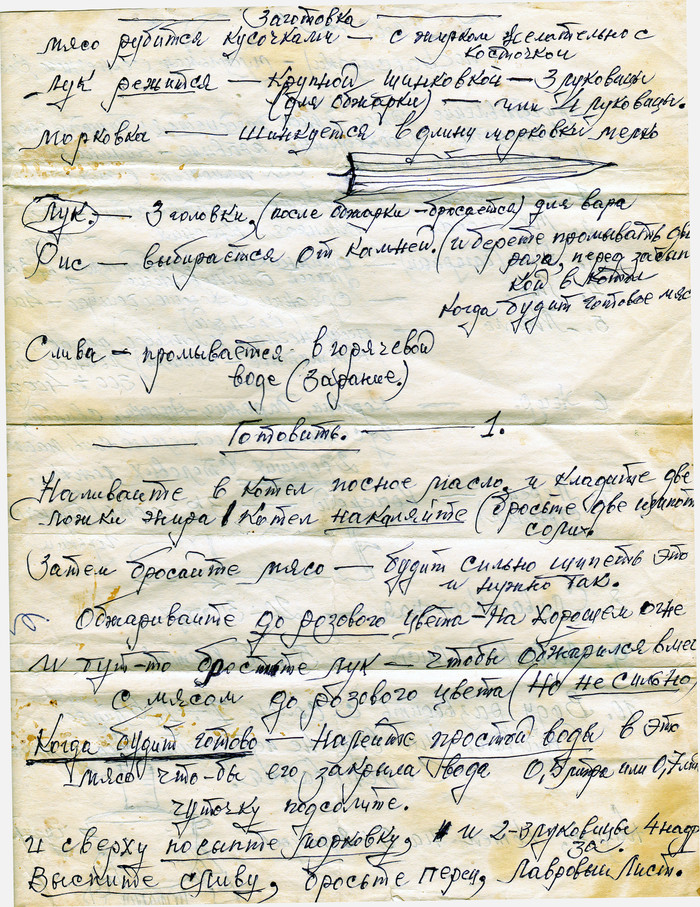 Заготовка
мясо рубится кусочками — с жирком желательно с
косточкой
Лук режится — крупной шинковкой — 3 луковицы
(для обжарки) — или 4 луковицы.
Морковка — шинкуется в длину морковки мелко
Лук. — 3 головки. (после обжарки — бросается) для вара
Рис — выбирается от камней. (и берете промывать
раза, перед засып
кой в котел
когда будит готовое мяс
Слива — промывается в горячевой
воде (Зарание.)
Готовить. — 1.
Наливаите в котел посное масло, и кладите две
ложки жира / Котел накаляйте (бросьте две щепот
соли.
Затем бросайте мясо — будит сильно шипеть это
и нужно так.
Обжаривайте до розового цвета — на хорошем огне
И тут-то бростьте лук — чтобы обжарился вмес
с мясом до розового цвета (но не сильно,
Когда будит готово — Налейте простой воды в это
мясо что-бы его закрыла вода 0,5 литра или 0,7 лит
чуточку подсолите.
и сверху посыпте морковку, и 2-3 луковицы.
Высыпите сливу, бросьте перец, Лавровый Лист.